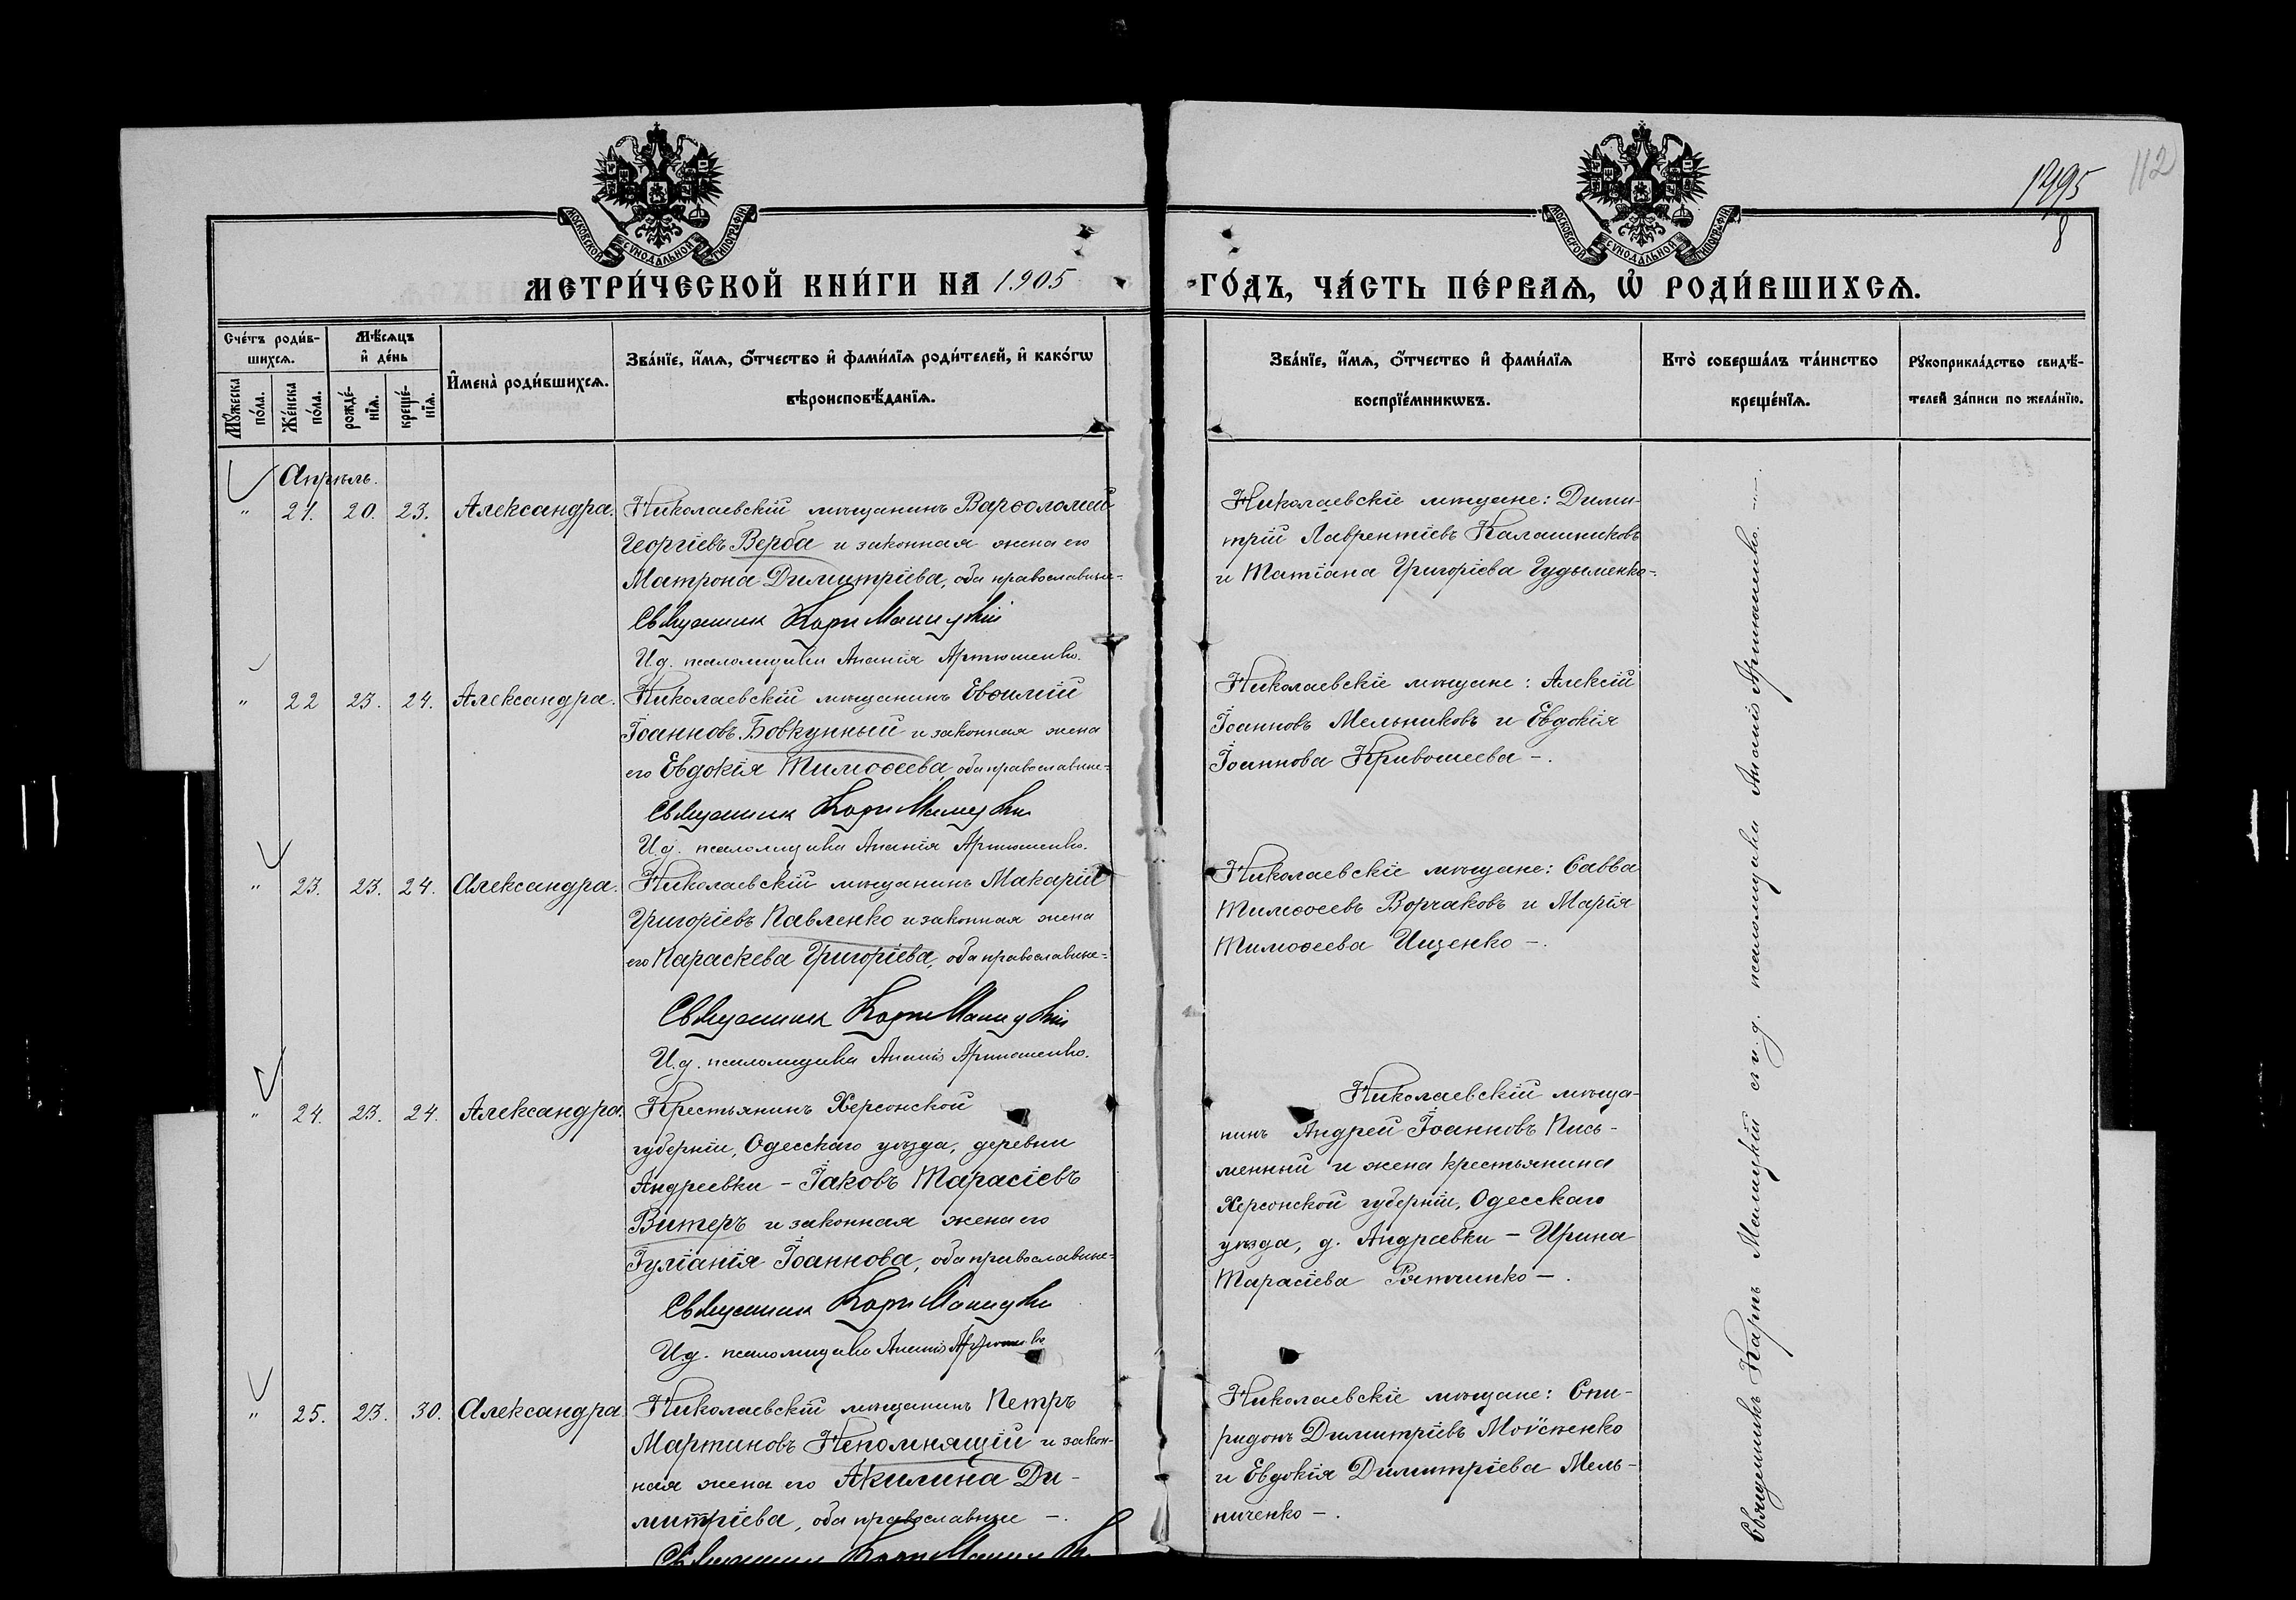 112
1495
8
МОСКОВСКОЙ СѴНОДАЛЬНОЙ ТИПОГРАФІИ
МОСКОВСКОЙ СѴНОДАЛЬНОЙ ТИПОГРАФІИ
МЕТРИ́ЧЕСКОЙ КНИ́ГИ НА 1905
ГО́ДЪ, ЧА́СТЬ ПЕ́РВАЯ, Ѽ РОДИ́ВШИХСЯ.
Сче́тъ роди́в-
шихся.
Мѣ́сяцъ
и҆ де́нь
Мꙋ́жеска
по́ла.
Же́нска
по́ла.
рожде́-
нїя.
креще́-
нїя.
И҆мена̀ роди́вшихся.
Зва́нїе, и҆́мя, ѻ҆́тчество и҆ фами́лїя роди́телей, и҆ како́гѡ
вѣроисповѣ́данїя.
Зва́нїе, и҆́мя, ѻ҆́тчество и҆ фами́лїя
воспрїе́мникѡвъ.
Кто̀ соверша́лъ та́инство
креще́нїя.
Рꙋкоприкла́дство свидѣ́-
телей за́писи по жела́нїю.
Апрѣль.
" 21. 20. 23. Александра.
Николаевскій мѣщанинъ Варѳоломей
Георгіевъ Верба и законная жена его
Матрона Димитріева, оба православные-
Священникъ Карпъ Малицкій
И.д. псаломщика Ананія Артюшенко.
Николаевскіе мѣщане: Дими-
трій Лаврентіевъ Калашниковъ
и Татіана Григоріева Гудыменко-.
" 22 23. 24. Александра.
Николаевскій мѣщанинъ Евѳимій
Іоанновъ Бовкунный и законная жена
его Евдокія Тимоѳеева, оба православные-
Священникъ Карпъ Малицкій
И.д. псаломщика Ананія Артюшенко.
Николаевскіе мѣщане: Алексій
Іоанновъ Мельниковъ и Евдокія
Іоаннова Кривошеева -.
" 23. 23. 24. Александра.
Николаевскій мѣщанинъ Макарій
Григоріевъ Павленко и законная жена
его Параскева Григоріева, оба православные-
Священникъ Карпъ Малицкій
И.д. псаломщика Ананія Артюшенко.
Николаевскіе мѣщане: Савва
Тимоѳеевъ Ворчаковъ и Марія
Тимоѳеева Ищенко -.
" 24. 23. 24. Александра.
Крестьянинъ Херсонской
губерніи, Одесскаго уѣзда, деревни
Андреевки - Іаковъ Тарасіевъ
Витеръ и законная жена его
Іуліанія Іоаннова, оба православные-
Священникъ Карпъ Малицкій
И.д. псаломщика Ананія Артюшенко
Николаевскій мѣща-
нинъ Андрей Іоанновъ Пись-
менный и жена крестьянина
Херсонской губерніи, Одесскаго
уѣзда, д. Андреевки - Ирина
Тарасіева
" 25. 23. 30. Александра
Николаевскій мѣщанинъ Петръ
Мартиновъ Непомнящій и закон-
ная жена его Акилина Ди-
митріева, оба православные -.
Священникъ Карпъ Малицкій
Николаевскіе мѣщане: Спи-
ридонъ Димитріевъ Моисѣенко
и Евдокія Димитріева Мель-
ниченко -.
Священникъ Карпъ Малицкій съ и.д. псаломщика Ананія Артюшенко.